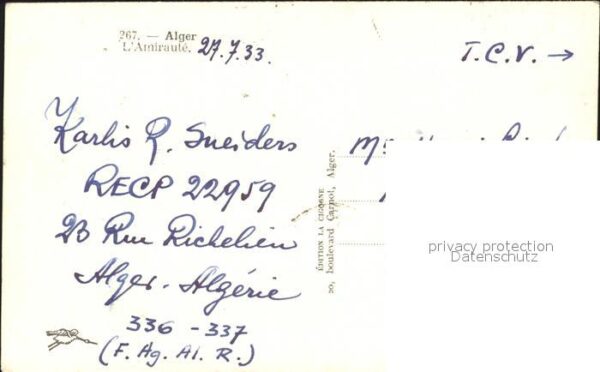 267. — Alger
L'Amirauté. 27.7.33.
T.C.V. →
Karlis R. Sneiders
RECP 22959
23 Rue Richelieu
Alger - Algérie
336 - 337
(F. Ag. Al. R.)
ÉDITION LA CIGOGNE
20, boulevard Carnot, Alger.
privacy protection
Datenschutz